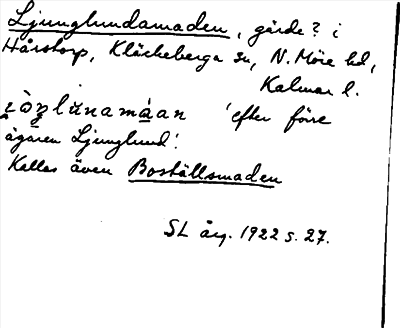 Ljunglundamaden, gärde? i
Hårstorp, Kläckeberga sn, N. Möre hd,
Kalmar l.
'efter före
ägaren Ljunglund'.
Kallas även Boställsmaden
SL årg. 1922 s. 27.